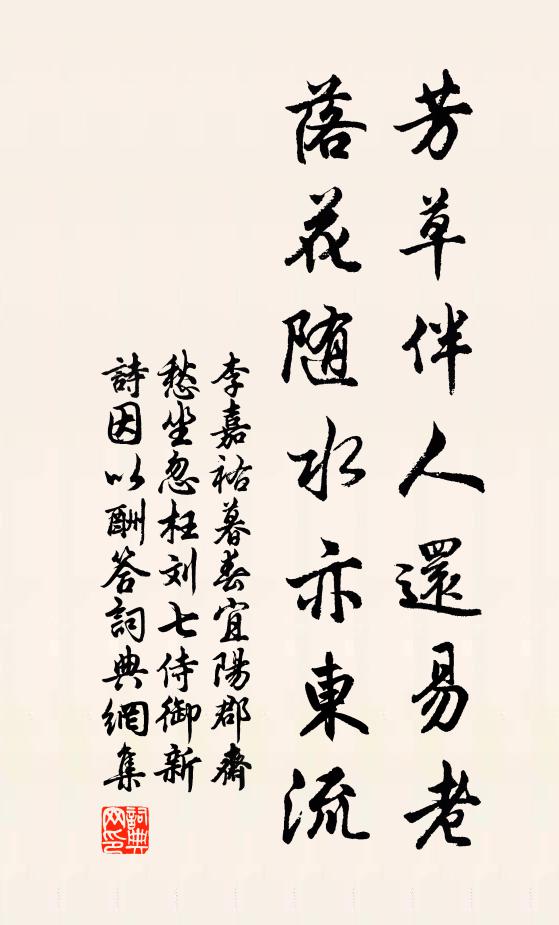 芳草伴人還易老
落花随水亦東流
李嘉祐暮春宜陽郡齋
愁坐忽枉刘七侍御新
詩因以酬答詞典網集
詞典
网印